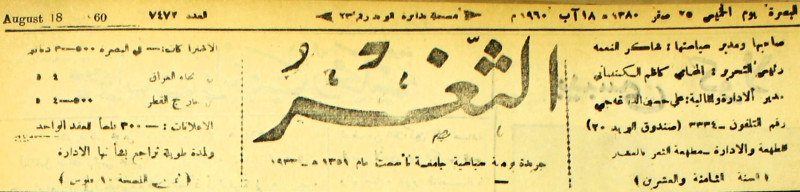 البصرة يوم الخميس ٢٥ صفر ١٣٨٠ ه ١٨ آب ١٩٦٠ م
العدد ٧٤٧٢
August 18 60
صاحبها ومدير سياستها : شاكر النعمه
رئيس التحرير : المحامي كاظم
مدير الادارة والمالية : علي حسين
رقم التلفون – ٣٣٣٤ (صندوق البريد ٢٠)
المطبعة والادارة – مطبعة الثغر بالعشار
( السنة الثامنة والعشرين )
الثغر
جريدة يومية سياسية جامعة تأسست عام ١٣٥١ ه – ١٩٣٣
الاشتراكات : – في البصرة ٥٠٠–٣٠ دنانير
العراق ٤
خارج القطر ٥٠٠–٤
الاعلانات : – ٣٠٠ فلساً للعقد الواحد
ولمدة طويلة تراجع بشأنها الادارة
( ثمن النسخة ١٠ فلوس )